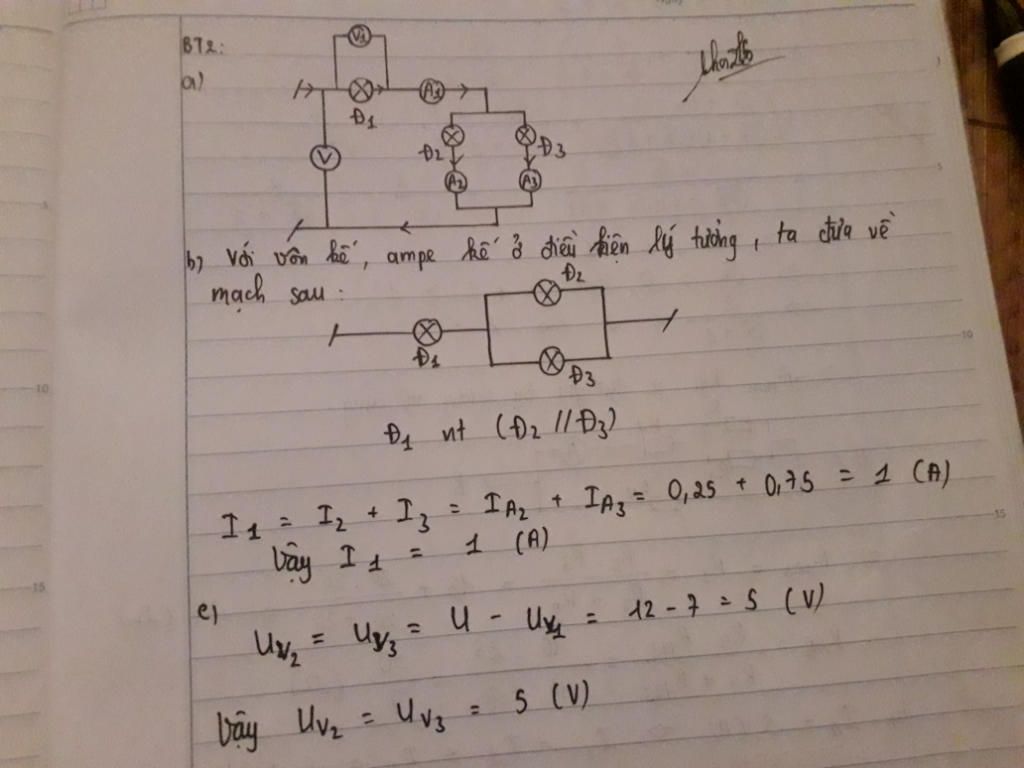 BT2:
a)
V1
Đ1
A1
V
Đ2
Đ3
A2
A3
b) Với vôn kế, ampe kế ở điều kiện lý tưởng, ta đưa về
mạch sau:
Đ2
Đ1
Đ3
Đ1 nt (Đ2 // Đ3)
I1 = I2 + I3 = IA2 + IA3 = 0,25 + 0,75 = 1 (A)
Vậy I1 = 1 (A)
c)
UV2 = UV3 = U - UV1 = 12 - 7 = 5 (V)
Vậy UV2 = UV3 = 5 (V)